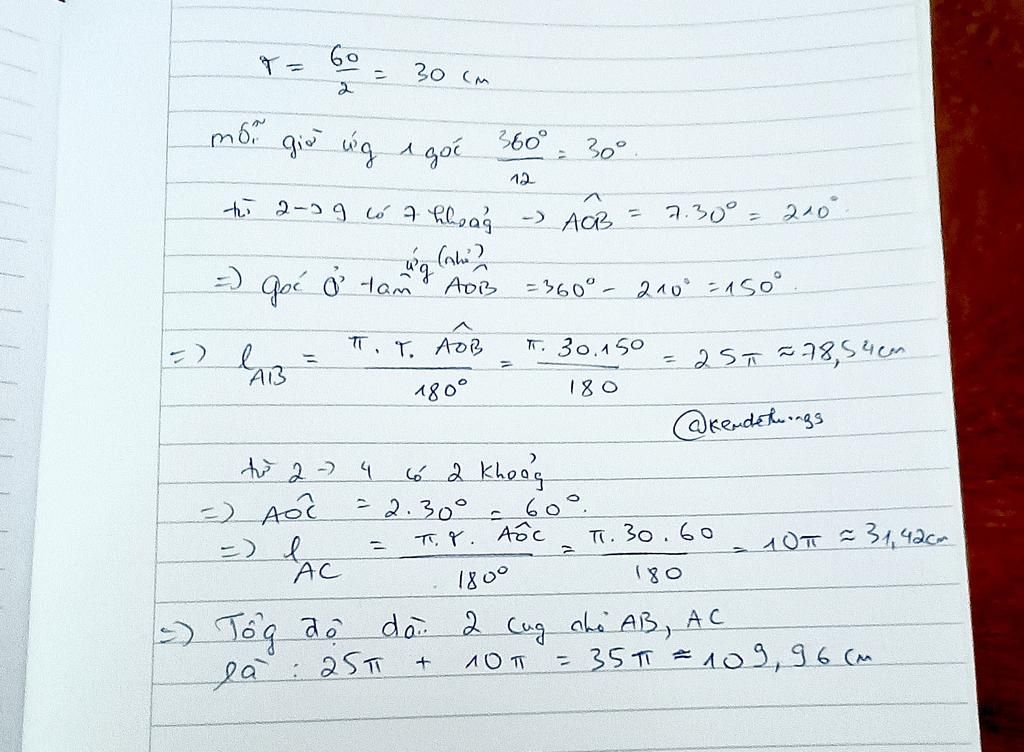 r = 60/2 = 30 cm
mỗi giờ ứg 1 góc 360°/12 = 30°.
từ 2 -> 9 có 7 khoảg -> AOB̂ = 7.30° = 210°.
=> góc ở tâm ứg (nhỏ) AOB̂ = 360° - 210° = 150°.
=> l_AB = π. r. AOB̂/180° = π. 30.150/180 = 25π ≈ 78,54 cm
@kendethings
từ 2 -> 4 có 2 khoảg
=> AOĈ = 2.30° = 60°.
=> l_AC = π. r. AOĈ/180° = π. 30. 60/180 = 10π ≈ 31,42cm
=> Tổg độ dài 2 cug nhỏ AB, AC
là : 25π + 10π = 35π ≈ 109,96 cm